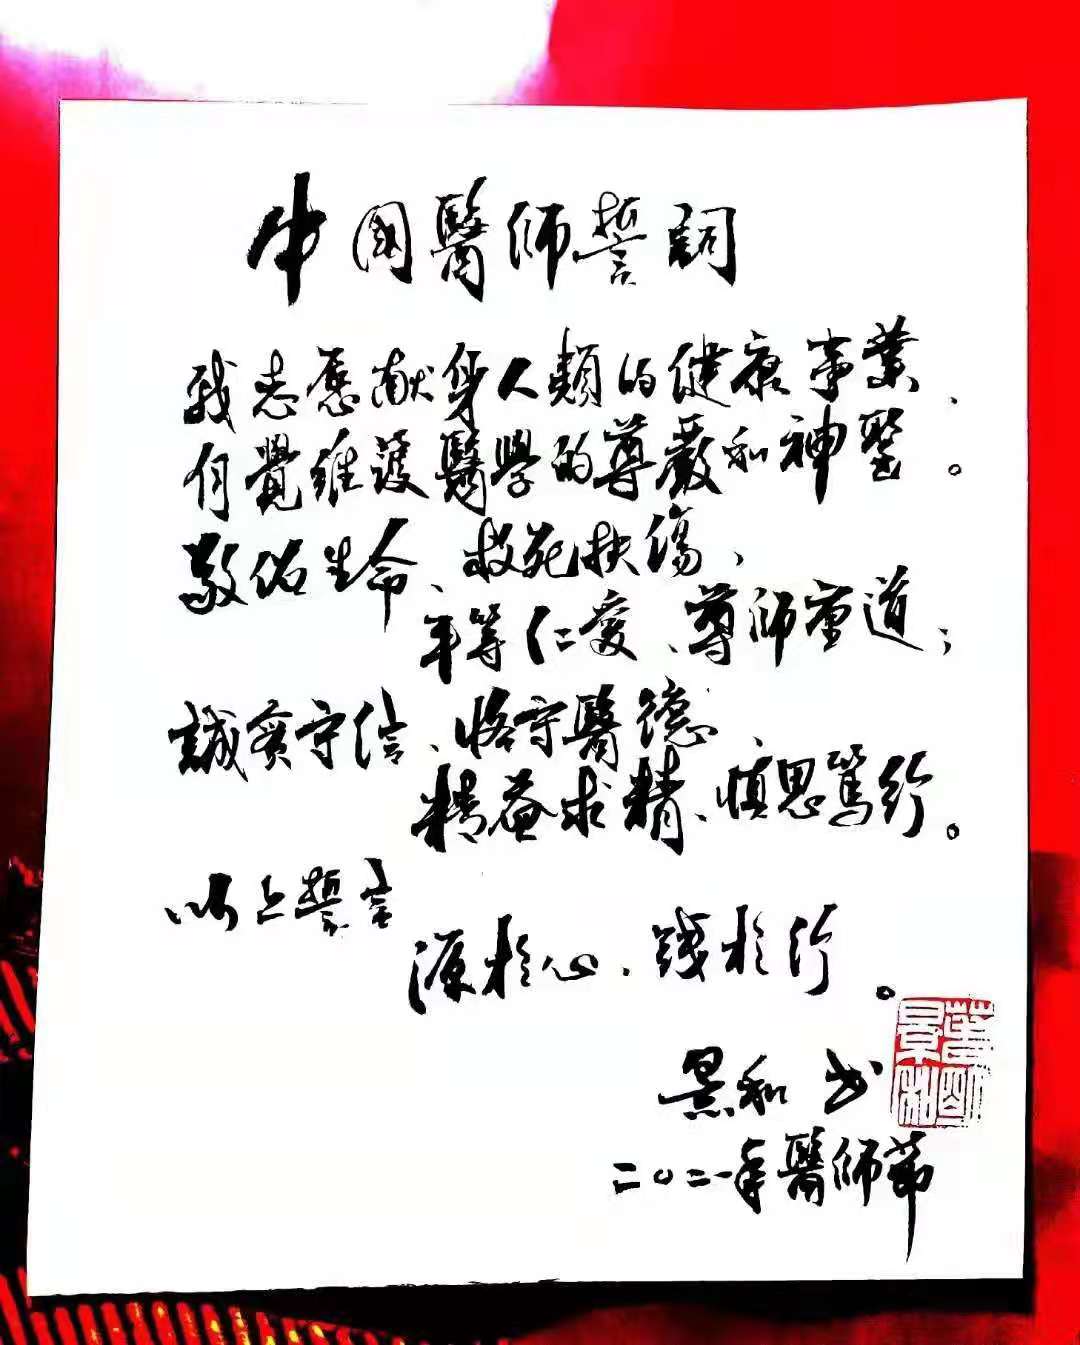 中國醫師誓詞
我志愿献身人類的健康事業、
自覺維護醫學的尊嚴和神聖。
敬佑生命、救死扶傷、
平等仁愛、尊師重道；
誠實守信、恪守醫德、
精益求精、慎思篤行。
以上誓言
源於心、踐於行。
景和书
二〇二一年醫師節